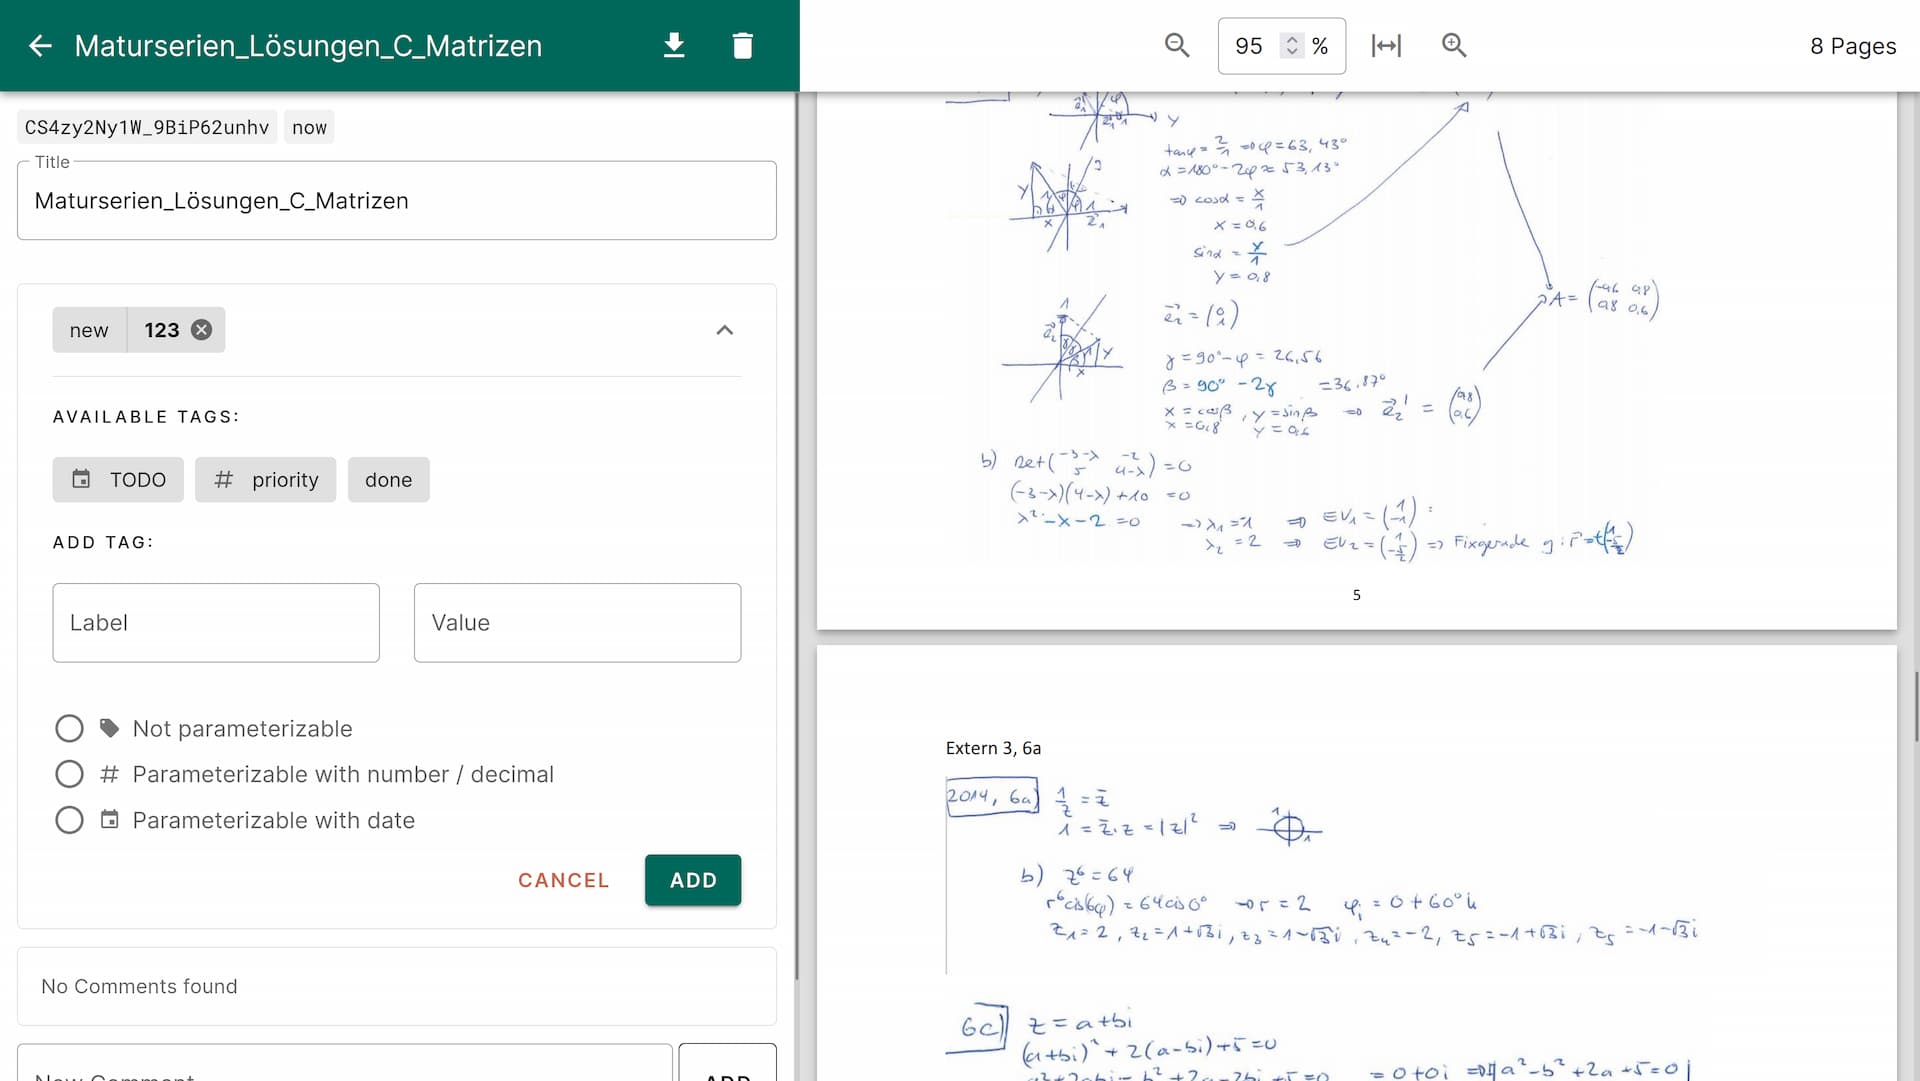 Maturserien_Lösungen_C_Matrizen
95 %
8 Pages
CS4zy2Ny1W_9BiP62unhv now
Title
Maturserien_Lösungen_C_Matrizen
new 123
AVAILABLE TAGS:
TODO # priority done
ADD TAG:
Label Value
Not parameterizable
# Parameterizable with number / decimal
Parameterizable with date
CANCEL ADD
No Comments found
New Comment ADD
tanφ = 2/1 ⇒ φ = 63,43°
α = 180° - 2φ ≈ 53,13°
⇒ cosα = x/1
x = 0,6
sinα = y/1
y = 0,8
A = (-0,6 0,8
0,8 0,6)
e₂ = (0 1)
γ = 90° - φ = 26,56
β = 90° - 2γ = 36,87°
x = cosβ, y = sinβ ⇒ e₂' = (0,8 0,6)
x = 0,8 y = 0,6
b) Det(-3-λ -2
5 4-λ) = 0
(-3-λ)(4-λ) + 10 = 0
λ² - λ - 2 = 0 → λ₁ = -1 ⇒ EV₁ = (1 -1)
λ₂ = 2 ⇒ EV₂ = (1 -5/2) ⇒ Fixgerade g: r = t(1 -5/2)
5
Extern 3, 6a
2014, 6a) 1/z = z̄
1 = z̄·z = |z|² ⇒
b) z⁶ = 64
r⁶cis(6φ) = 64cis0° → r = 2 φᵢ = 0 + 60°k
z₁ = 2, z₂ = 1+√3i, z₃ = 1-√3i, z₄ = -2, z₅ = -1+√3i, z₅ = -1-√3i
6c) z = a+bi
(a+bi)² + 2(a-bi) + 5 = 0
a² + 2abi - b² + 2a - 2bi + 5 = 0 = 0+0i ⇒ a² - b² + 2a + 5 = 0